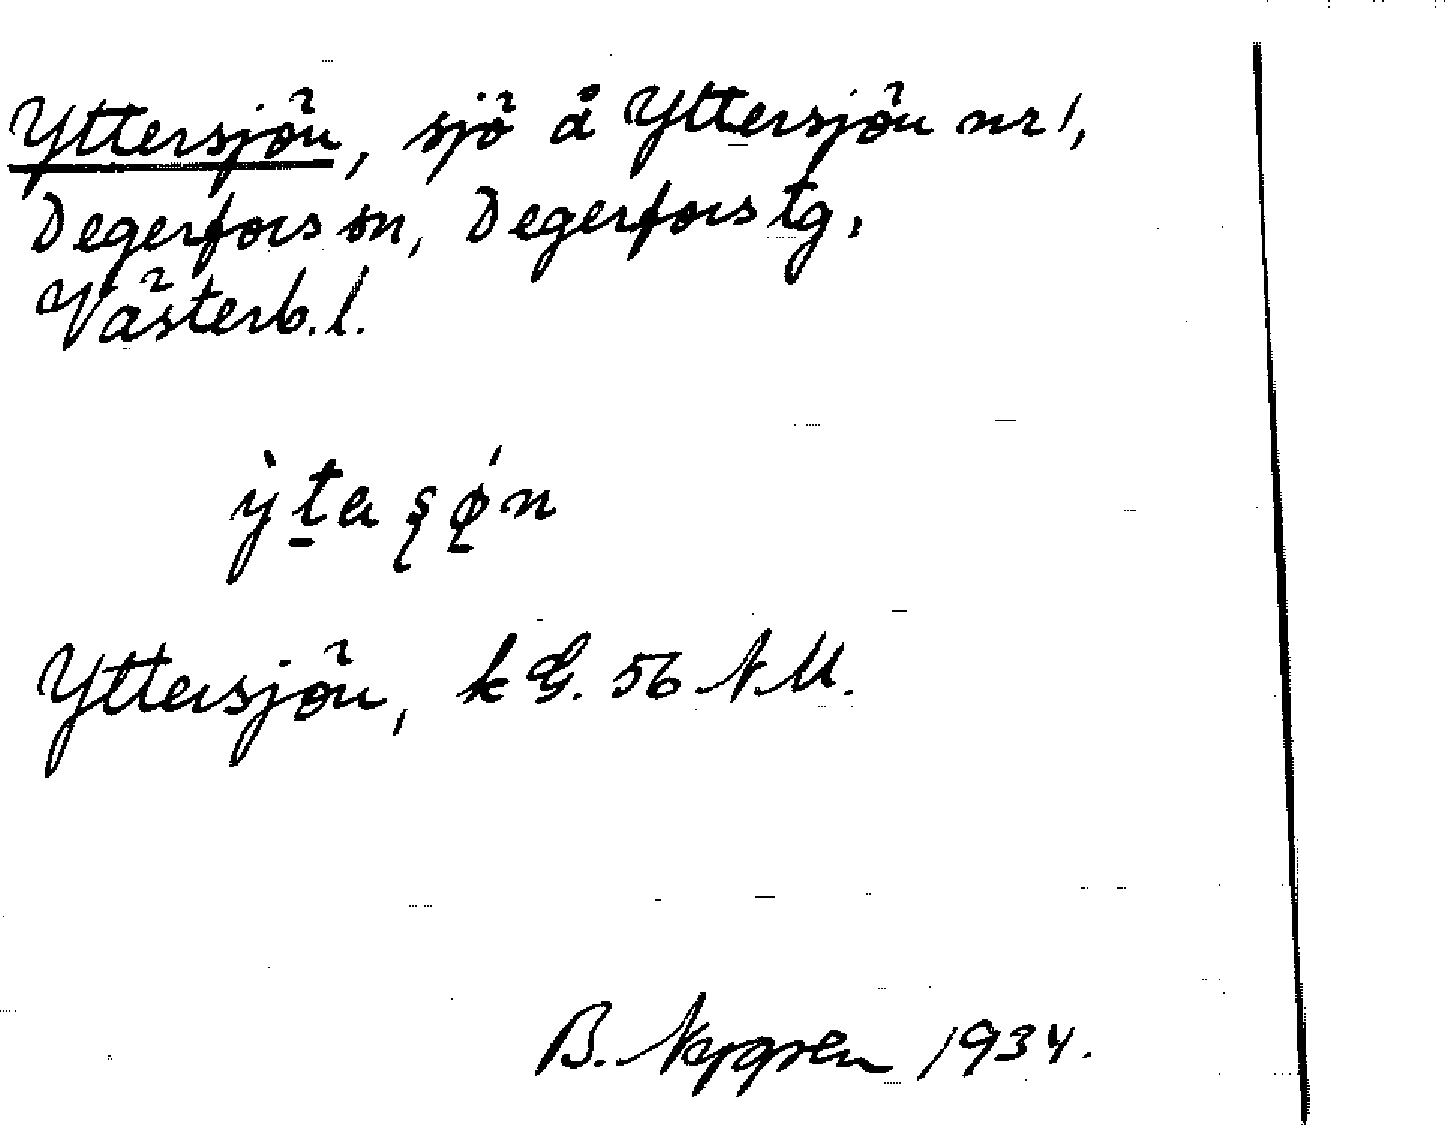 Yttersjön, sjö å Yttersjön nr 1,
Degerfors sn, Degerfors tg,
Västerb. l.
ỳta şǿn
Yttersjön, k G. 56 N M.
B. Nygren 1934.